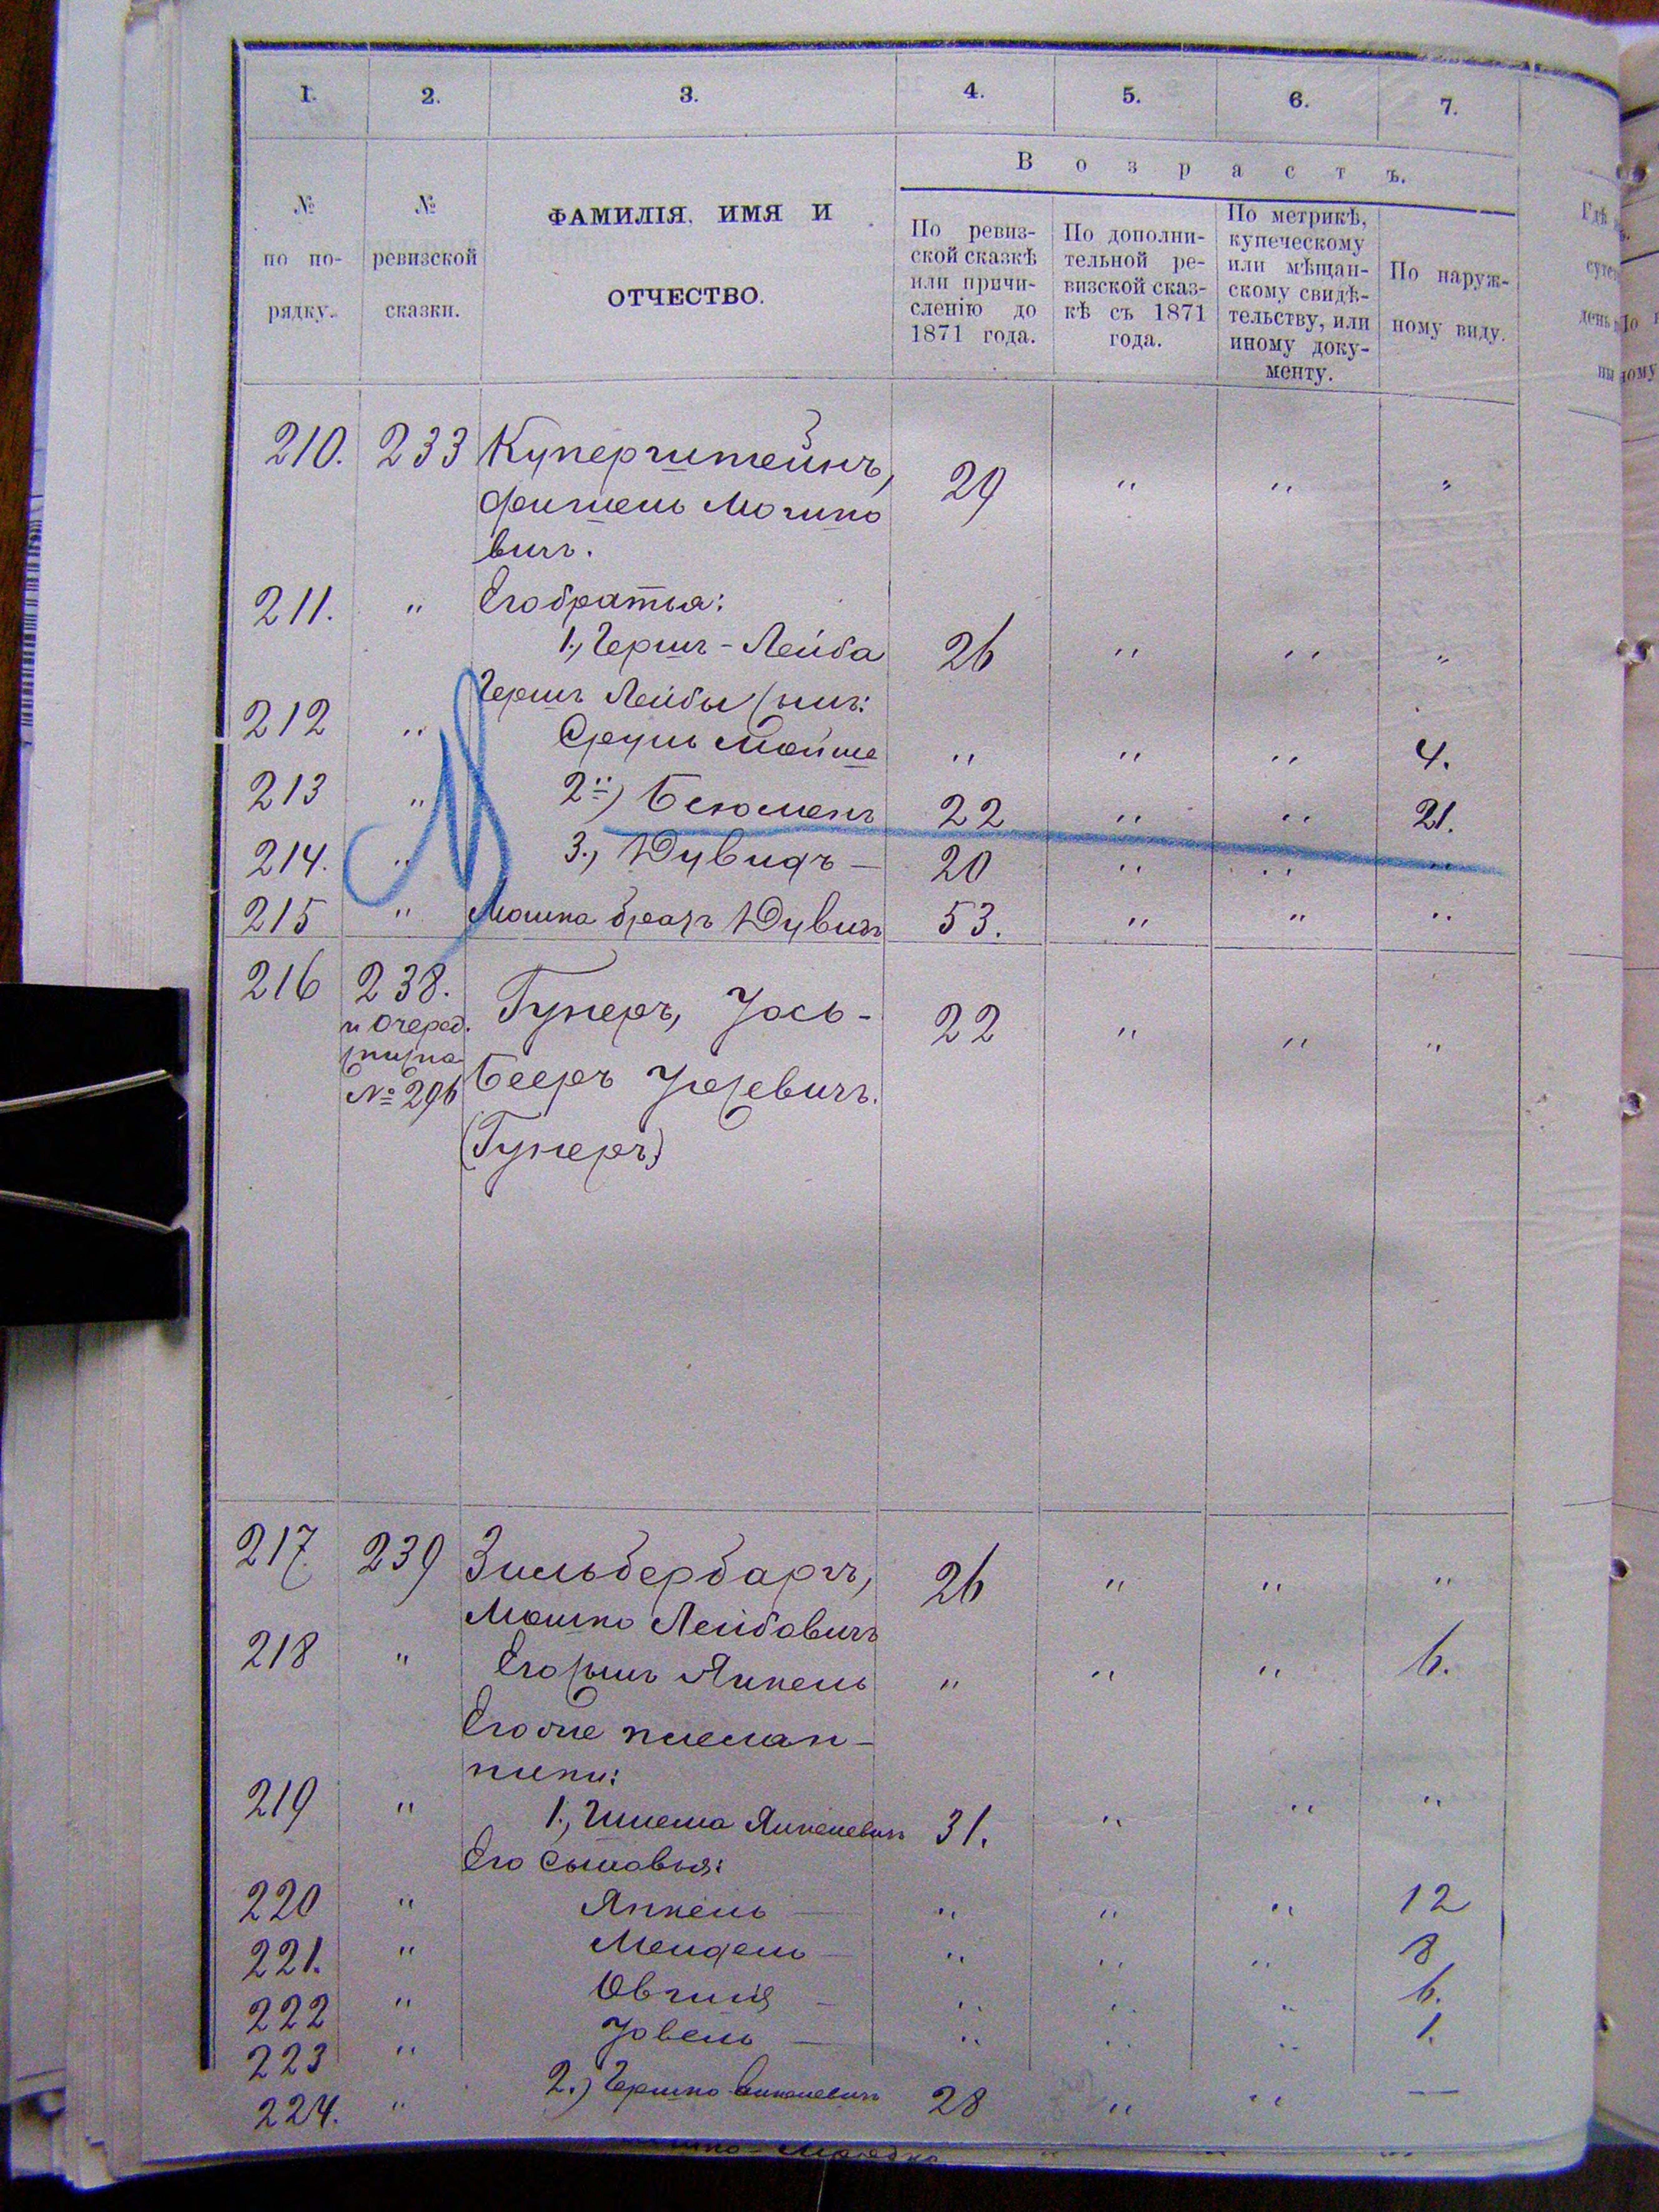 1. 2. 3. 4. 5. 6. 7.
В о з р а с т ъ.
№ по по- рядку.
№ ревизской сказки.
ФАМИЛІЯ, ИМЯ И
ОТЧЕСТВО.
По ревиз-
ской сказкѣ
или причи-
сленію до
1871 года.
По дополни-
тельной ре-
визской сказ-
кѣ съ 1871
года.
По метрикѣ,
купеческому
или мѣщан-
скому свидѣ-
тельству, или
иному доку-
менту.
По наруж-
ному виду.
210. 233 Куперштейнъ, 29 " " "
Фишель Мошко
вичъ.
211. " Его братья:
1., Гершъ-Лейба 26 " " "
Гершъ Лейбы сынъ:
212 " Сруль Мойше " " " 4.
213 " 2й) Беюменъ 22 " " 21.
214. " 3., Дувидъ — 20 " " "
215 " Мошка братъ Дувидъ 53. " " "
216 238. Гунеръ, Іось- 22 " " "
и очеред.
списка
№ 296 Бееръ Іосевичъ.
(Гунеръ)
217 239 Зильбербаргъ, 26 " " "
Мошко Лейбовичъ
218 " Его сынъ Янкель " " " 6.
Его же племян-
ники:
219 " 1., Шлема Янкелевичъ 31. " " "
Его сыновья:
220 " Янкель — " " " 12
221. " Мендель — " " " 8
222 " Овшія — " " " 6.
223 " Іовель — " " " 1.
224. " 2.) Гершко Янкелевичъ 28 " " —